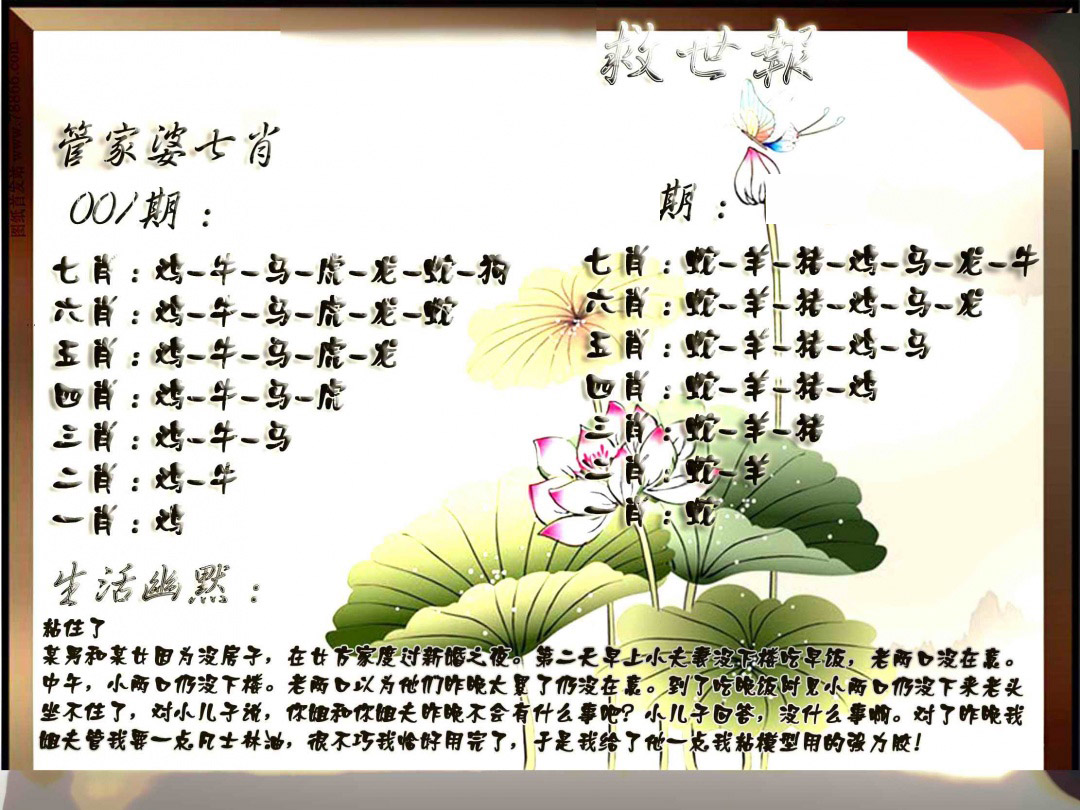 救世報
管家婆七肖
001期：
七肖：鸡-牛-马-虎-龙-蛇-狗
六肖：鸡-牛-马-虎-龙-蛇
五肖：鸡-牛-马-虎-龙
四肖：鸡-牛-马-虎
三肖：鸡-牛-马
二肖：鸡-牛
一肖：鸡
期：
七肖：蛇-羊-猪-鸡-马-龙-牛
六肖：蛇-羊-猪-鸡-马-龙
五肖：蛇-羊-猪-鸡-马
四肖：蛇-羊-猪-鸡
三肖：蛇-羊-猪
二肖：蛇-羊
一肖：蛇
生活幽默：
粘住了
某男和某女因为没房子，在女方家度过新婚之夜。第二天早上小夫妻没下楼吃早饭，老两口没在意。
中午，小两口仍没下楼。老两口以为他们昨晚太累了仍没在意。到了吃晚饭时见小两口仍没下来老头
坐不住了，对小儿子说，你姐和你姐夫昨晚不会有什么事吧？小儿子回答，没什么事啊。对了昨晚我
姐夫管我要一点凡士林油，很不巧我恰好用完了，于是我给了他一点我粘模型用的强力胶！